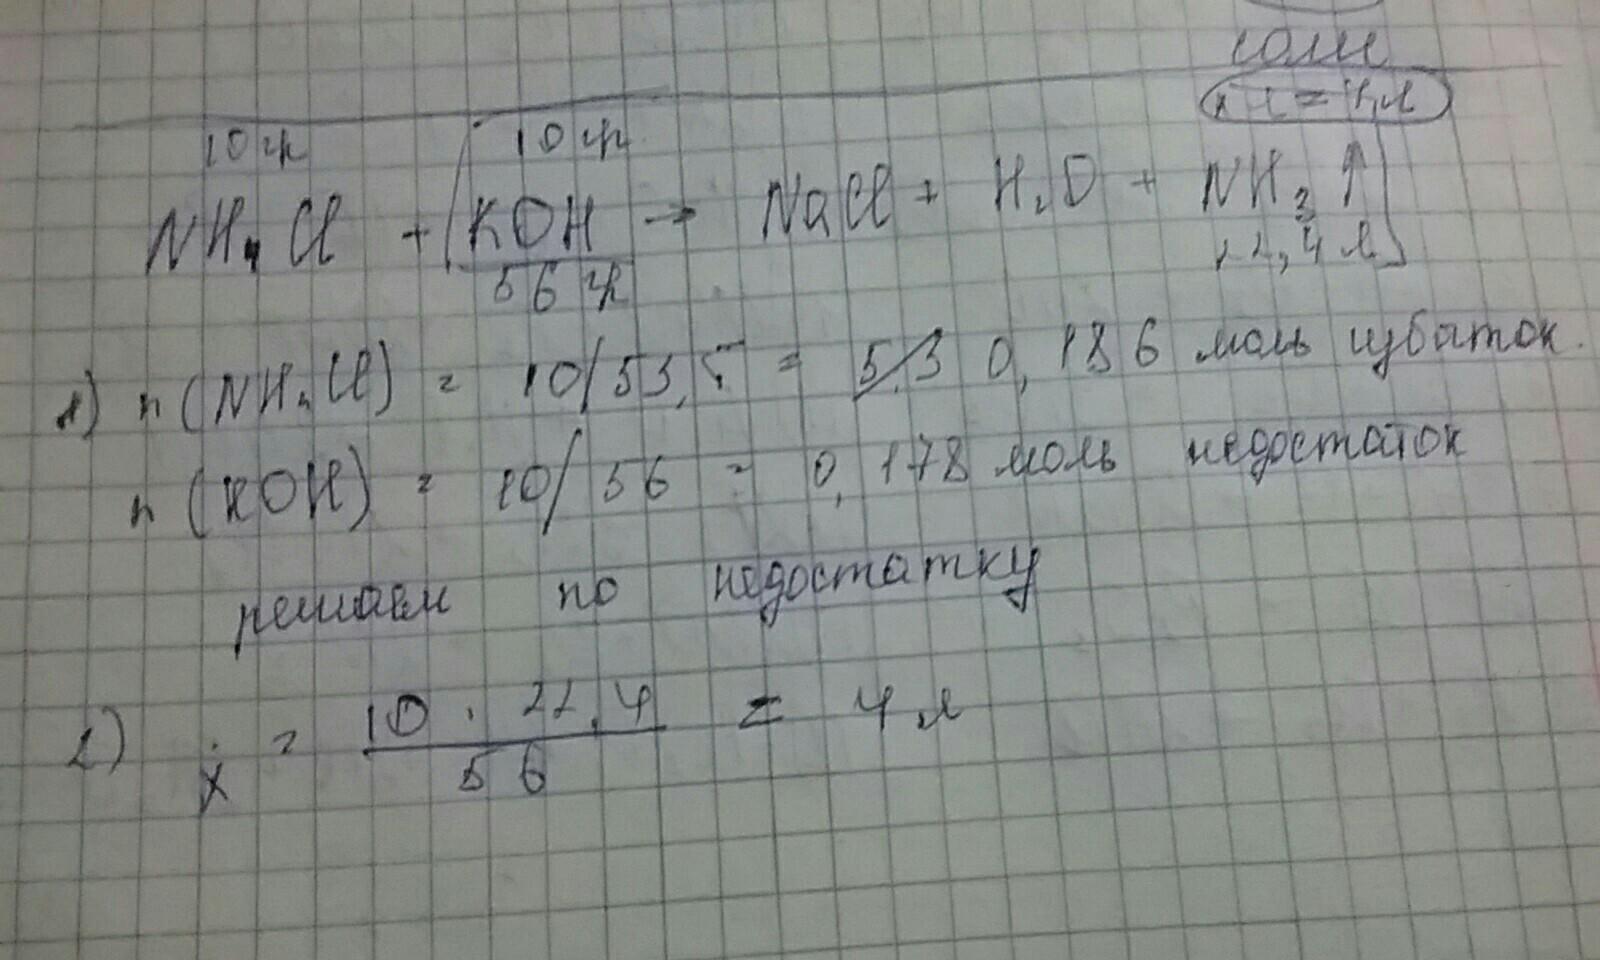 соли
x л = 4 л
10 гр 10 гр
NH₄Cl + KOH → NaCl + H₂O + NH₃ ↑
56 гр 22,4 л
1) n (NH₄Cl) = 10/53,5 = 5.3 0,186 моль избыток.
n (KOH) = 10/56 = 0,178 моль недостаток
решаем по недостатку
2) x = 10 . 22,4 = 4 л
56